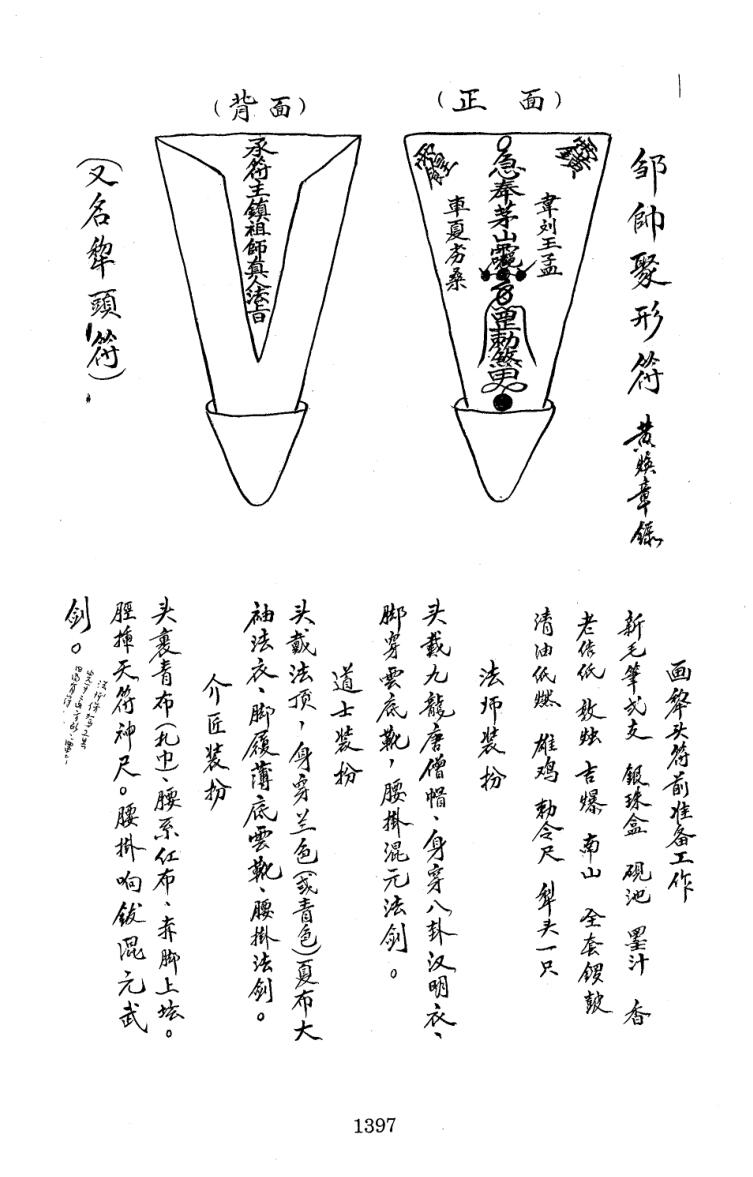 邹帥聚形符 黄焕章錄
（正 面）
急奉茅山靈官罡勅煞
韋刘王孟
車夏劳桑
（背 面）
承符主鎮祖師真人法旨
（又名犂頭符）
画犂头符前准备工作
新毛筆弍支 銀珠盒 硯池 墨汁 香
老信纸 数烛 吉爆 南山 全套锣鼓
清油纸燃 雄鸡 勅令尺 犁头一只
法师装扮
头载九龍唐僧帽、身穿八卦汉明衣、
脚穿雲底靴，腰掛混元法劍。
道士装扮
头戴法顶，身穿兰色（或青色）夏布大
袖法衣、脚履薄底雲靴、腰掛法劍。
介匠装扮
头裹青布（扎巾）、腰系红布、赤脚上坛。
脛揷天符神尺。腰掛响鈸混元武
劍。
1397